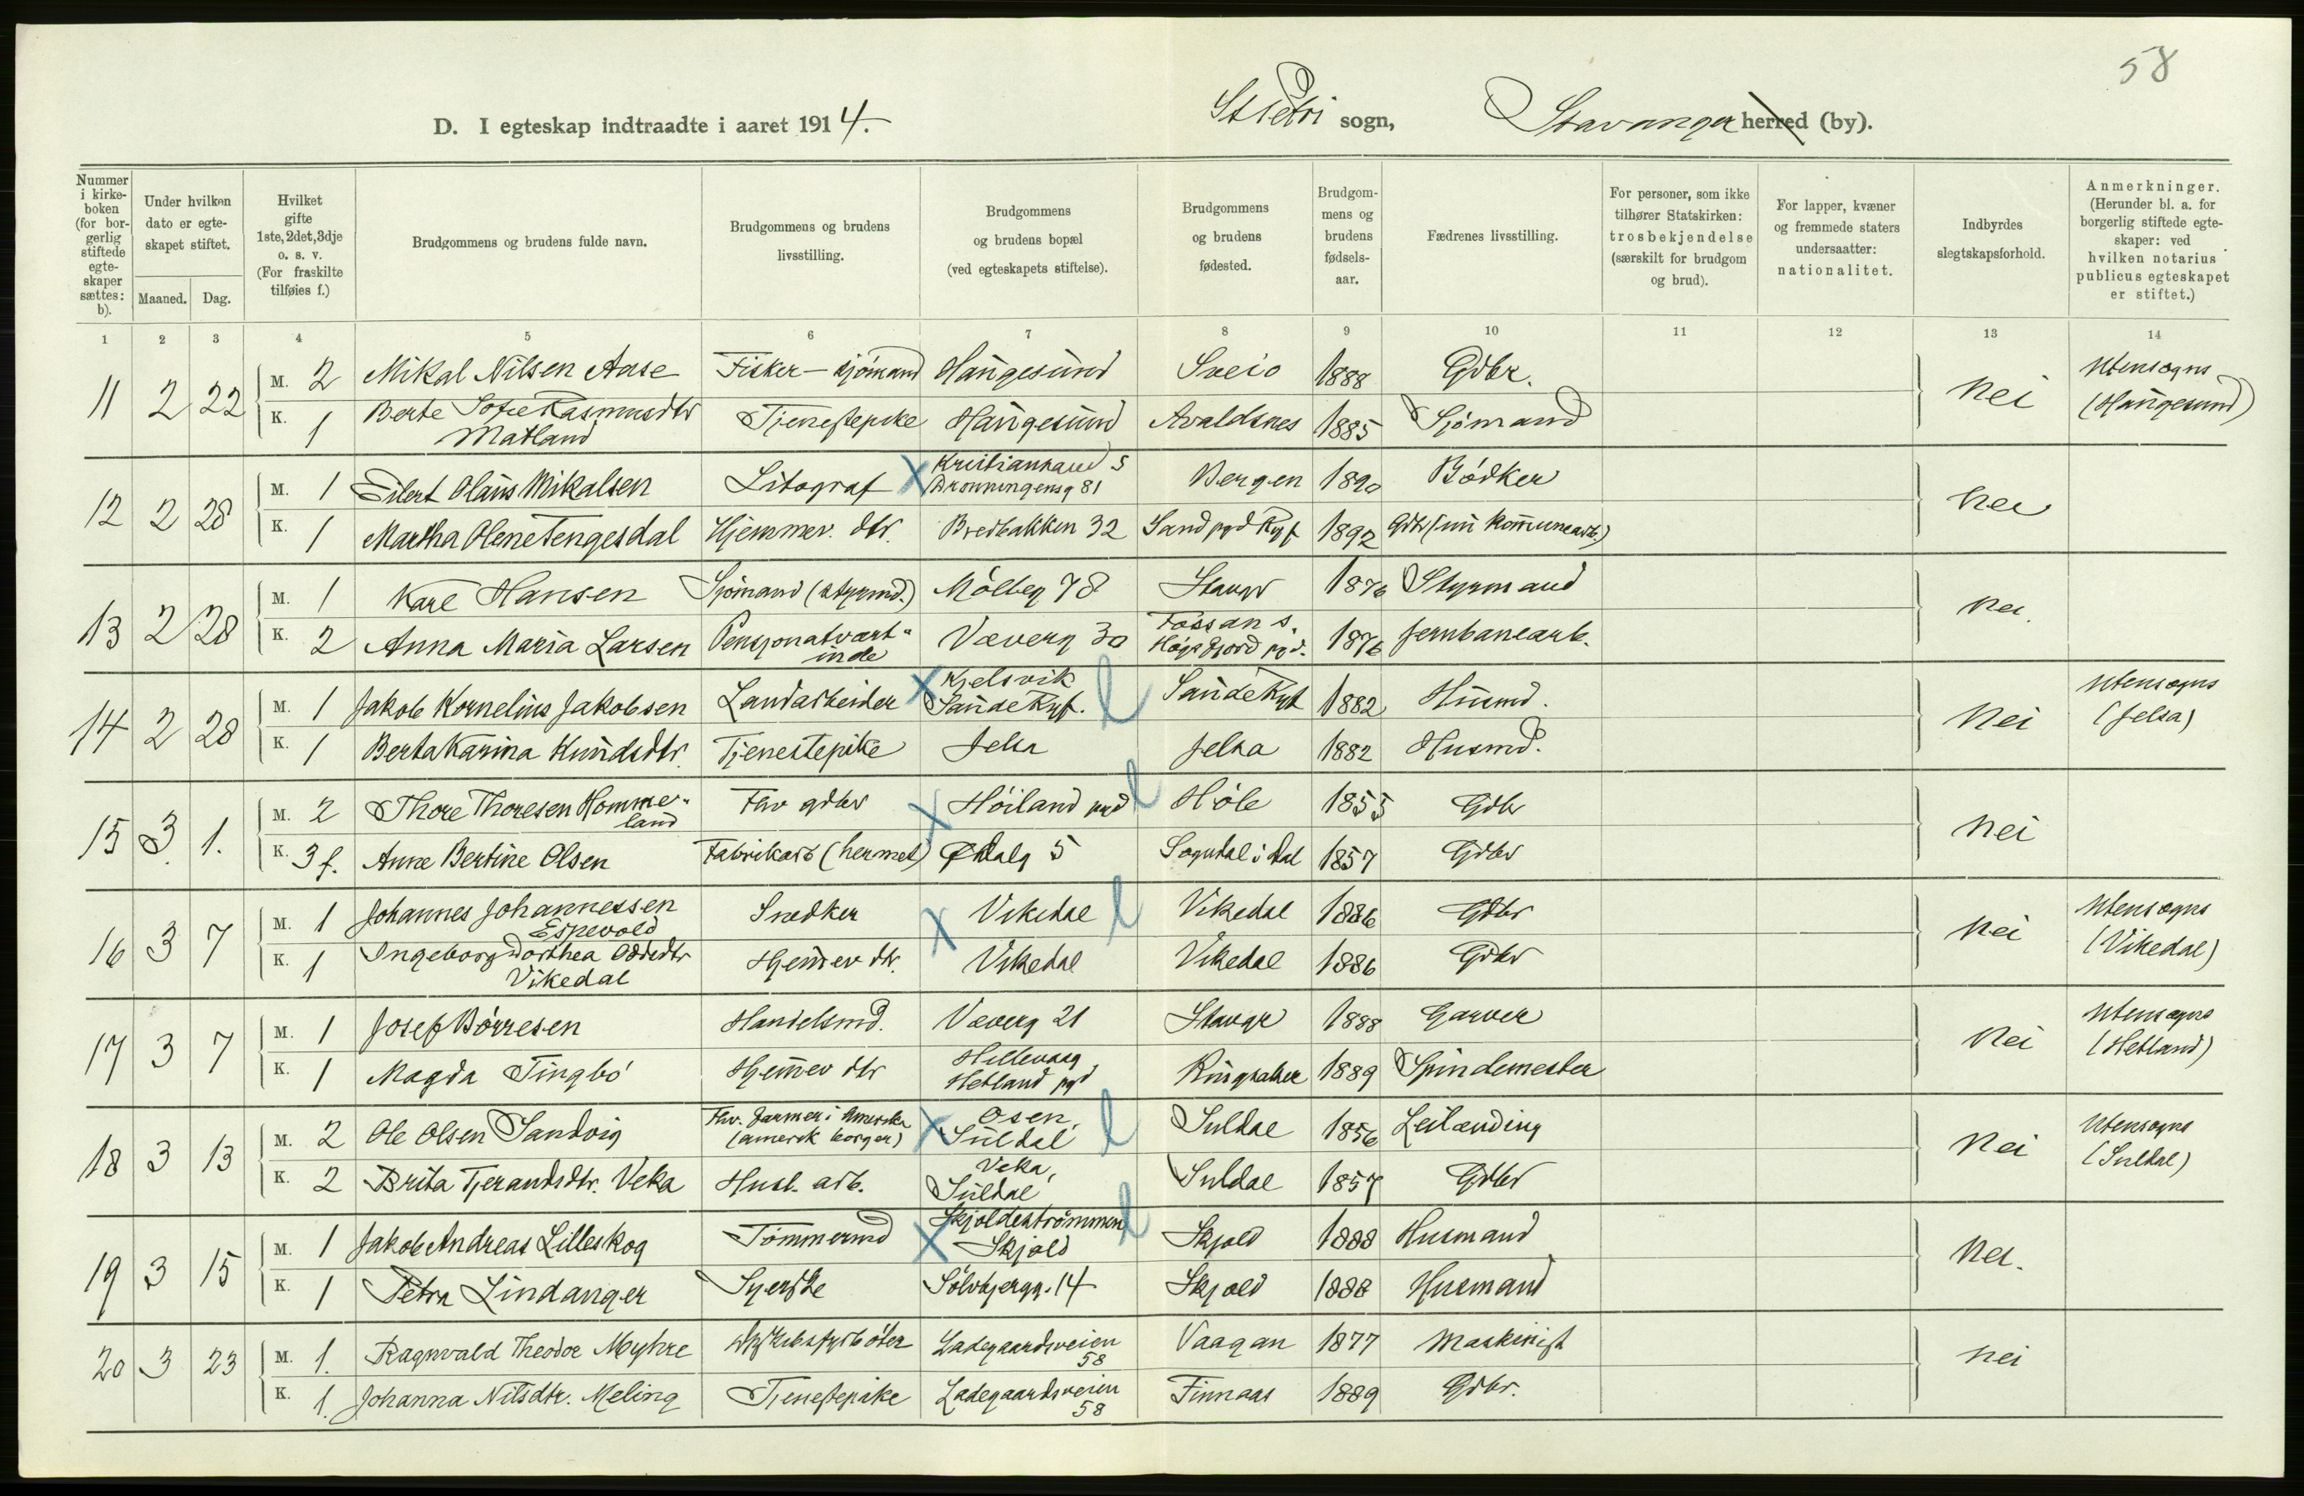 58
D. I egteskap indtraadte i aaret 1914.
St Petri sogn, Stavanger herred (by).
Nummer i kirkeboken (for borgerlig stiftede egteskaper sættes: b).
Under hvilken dato er egteskapet stiftet.
Maaned. Dag.
Hvilket gifte 1ste, 2det, 3dje o. s. v. (For fraskilte tilføies f.)
Brudgommens og brudens fulde navn.
Brudgommens og brudens livsstilling.
Brudgommens og brudens bopæl (ved egteskapets stiftelse).
Brudgommens og brudens fødested.
Brudgommens og brudens fødselsaar.
Fædrenes livsstilling.
For personer, som ikke tilhører Statskirken: trosbekjendelse (særskilt for brudgom og brud).
For lapper, kvæner og fremmede staters undersaatter: nationalitet.
Indbyrdes slegtskapsforhold.
Anmerkninger. (Herunder bl. a. for borgerlig stiftede egteskaper: ved hvilken notarius publicus egteskapet er stiftet.)
1 2 3 4 5 6 7 8 9 10 11 12 13 14
11 2 22 M. 2 Mikal Nilsen Aase Fisker – sjømand Haugesund Sveio 1888 Gdbr. Nei Utensogns (Haugesund)
K. 1 Berte Sofie Rasmusdtr Matland Tjenestepike Haugesund Avaldsnes 1885 Sjømand
12 2 28 M. 1 Eilert Olaus Mikalsen Litograf X Kristiansand S Dronningensg 81 Bergen 1890 Bødker Nei
K. 1 Martha Olene Tengesdal Hjemmev. dtr. Bredbakken 32 Sand pgd Ryf 1892 Gdbr (nu Kommunearb.)
13 2 28 M. 1 Karl Hansen Sjømand (styrmd.) Mölleg 78 Stavgr 1876 Styrmand Nei.
K. 2 Anna Maria Larsen Pensjonatvertinde Væverg 30 Fossan s. Høgsfjord pgd. 1876 Jernbanearb.
14 2 28 M. 1 Jakob Kornelius Jakobsen Landarbeider X Kjelsvik Saude Ryf. l Saude Ryf 1882 Husmd. Nei Utensogns (Jelsa)
K. 1 Berta Karina Knudsdtr. Tjenestepike Jelsa Jelsa 1882 Husmd.
15 3 1. M. 2 Thore Thoresen Hommeland Fhv gdbr X Höiland pgd l Høle 1855 Gdbr Nei
K. 3 f. Anne Bertine Olsen Fabrikarb (hermet) Ødalg 5 Sogndal i Dal 1857 Gdbr
16 3 7 M. 1 Johannes Johannessen Espevold Snedker X Vikedal l Vikedal 1886 Gdbr Nei Utensogns (Vikedal)
K. 1 Ingeborg Dorthea Oddsdtr Vikedal Hjemmev dtr. Vikedal Vikedal 1886 Gdbr
17 3 7 M. 1 Josef Börresen Handelsmd. Væverg 21 Stavgr 1888 Garver Nei Utensogns (Hetland)
K. 1 Magda Tingbö Hjemmev dtr Hillevaag Hetland pgd Ringsaker 1889 Spindemester
18 3 13 M. 2 Ole Olsen Sandvig Fhv. Farmer i Amerika (amerik borger) X Osen, Suldal l Suldal 1856 Leilænding Nei Utensogns (Suldal)
K. 2 Brita Tjerandsdtr. Veka Husl. arb. Veka, Suldal Suldal 1857 Gdbr
19 3 15 M. 1 Jakob Andreas Lilleskog Tömmermd X Skjoldeströmmen Skjold l Skjold 1888 Husmand Nei.
K. 1 Petra Lindanger Syerske Sölvbjergg. 14 Skjold 1888 Husmand
20 3 23 M. 1. Ragnvald Theodor Myhre Ladegaardsveien 58 Vaagan 1877 Maskinist Nei
K. 1. Johanna Nilsdtr. Meling Tjenestepike Ladegaardsveien 58 Finnaas 1889 Gdbr.